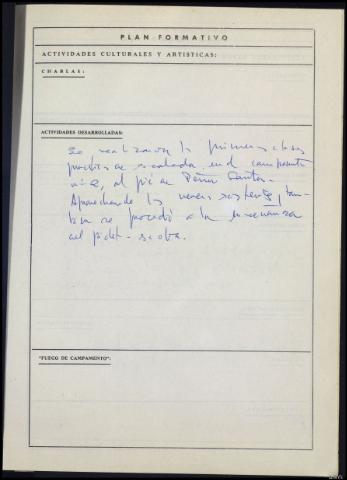 PLAN FORMATIVO
ACTIVIDADES CULTURALES Y ARTISTICAS:
CHARLAS:
ACTIVIDADES DESARROLLADAS:
Se realizaron las primeras clases
practicas de escalada en el campamento
al pié de Peña Santa.
Aprovechando las nieves tam-
bien se procedió a la enseñanza
del
"FUEGO DE CAMPAMENTO":